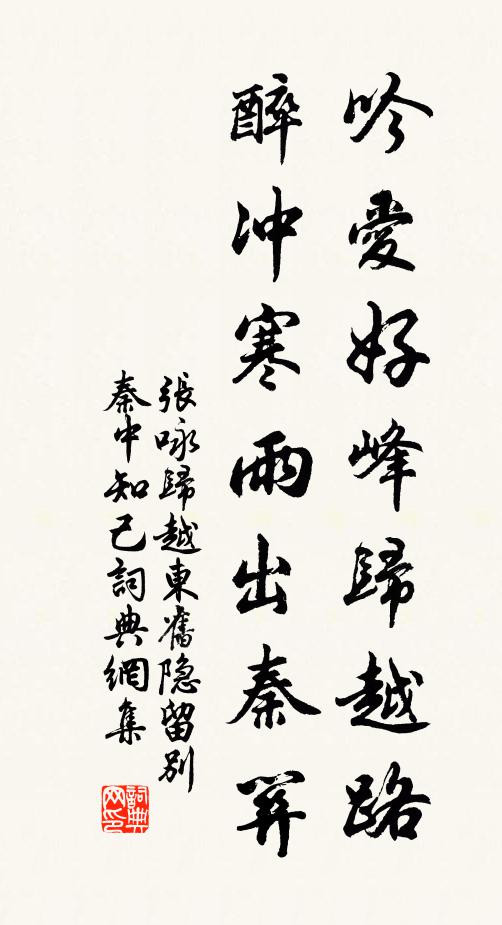 吟愛好峰歸越路
醉冲寒雨出秦關
張咏歸越東舊隐留別
秦中知己詞典網集
詞典
网印